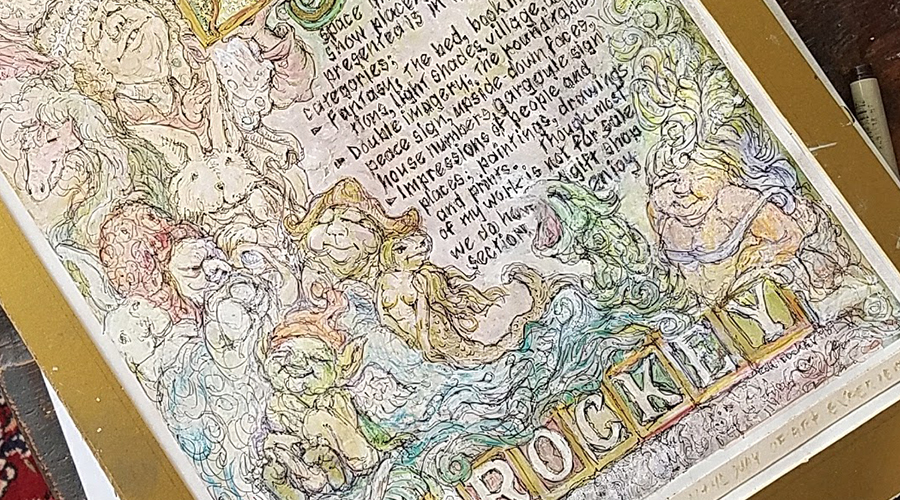 space
show place
presented in
categories;
▸ Fantasy. The bed, book
light shades, village,
▸ Double imagery; the roundtable
peace sign, upside down faces,
house numbers, gargoyle sign
▸ Impressions of people and
places; paintings, drawings
and prints. Though most
of my work is not for sale
we do have gift shop
section. enjoy
ROCKEY
WAY OF ART